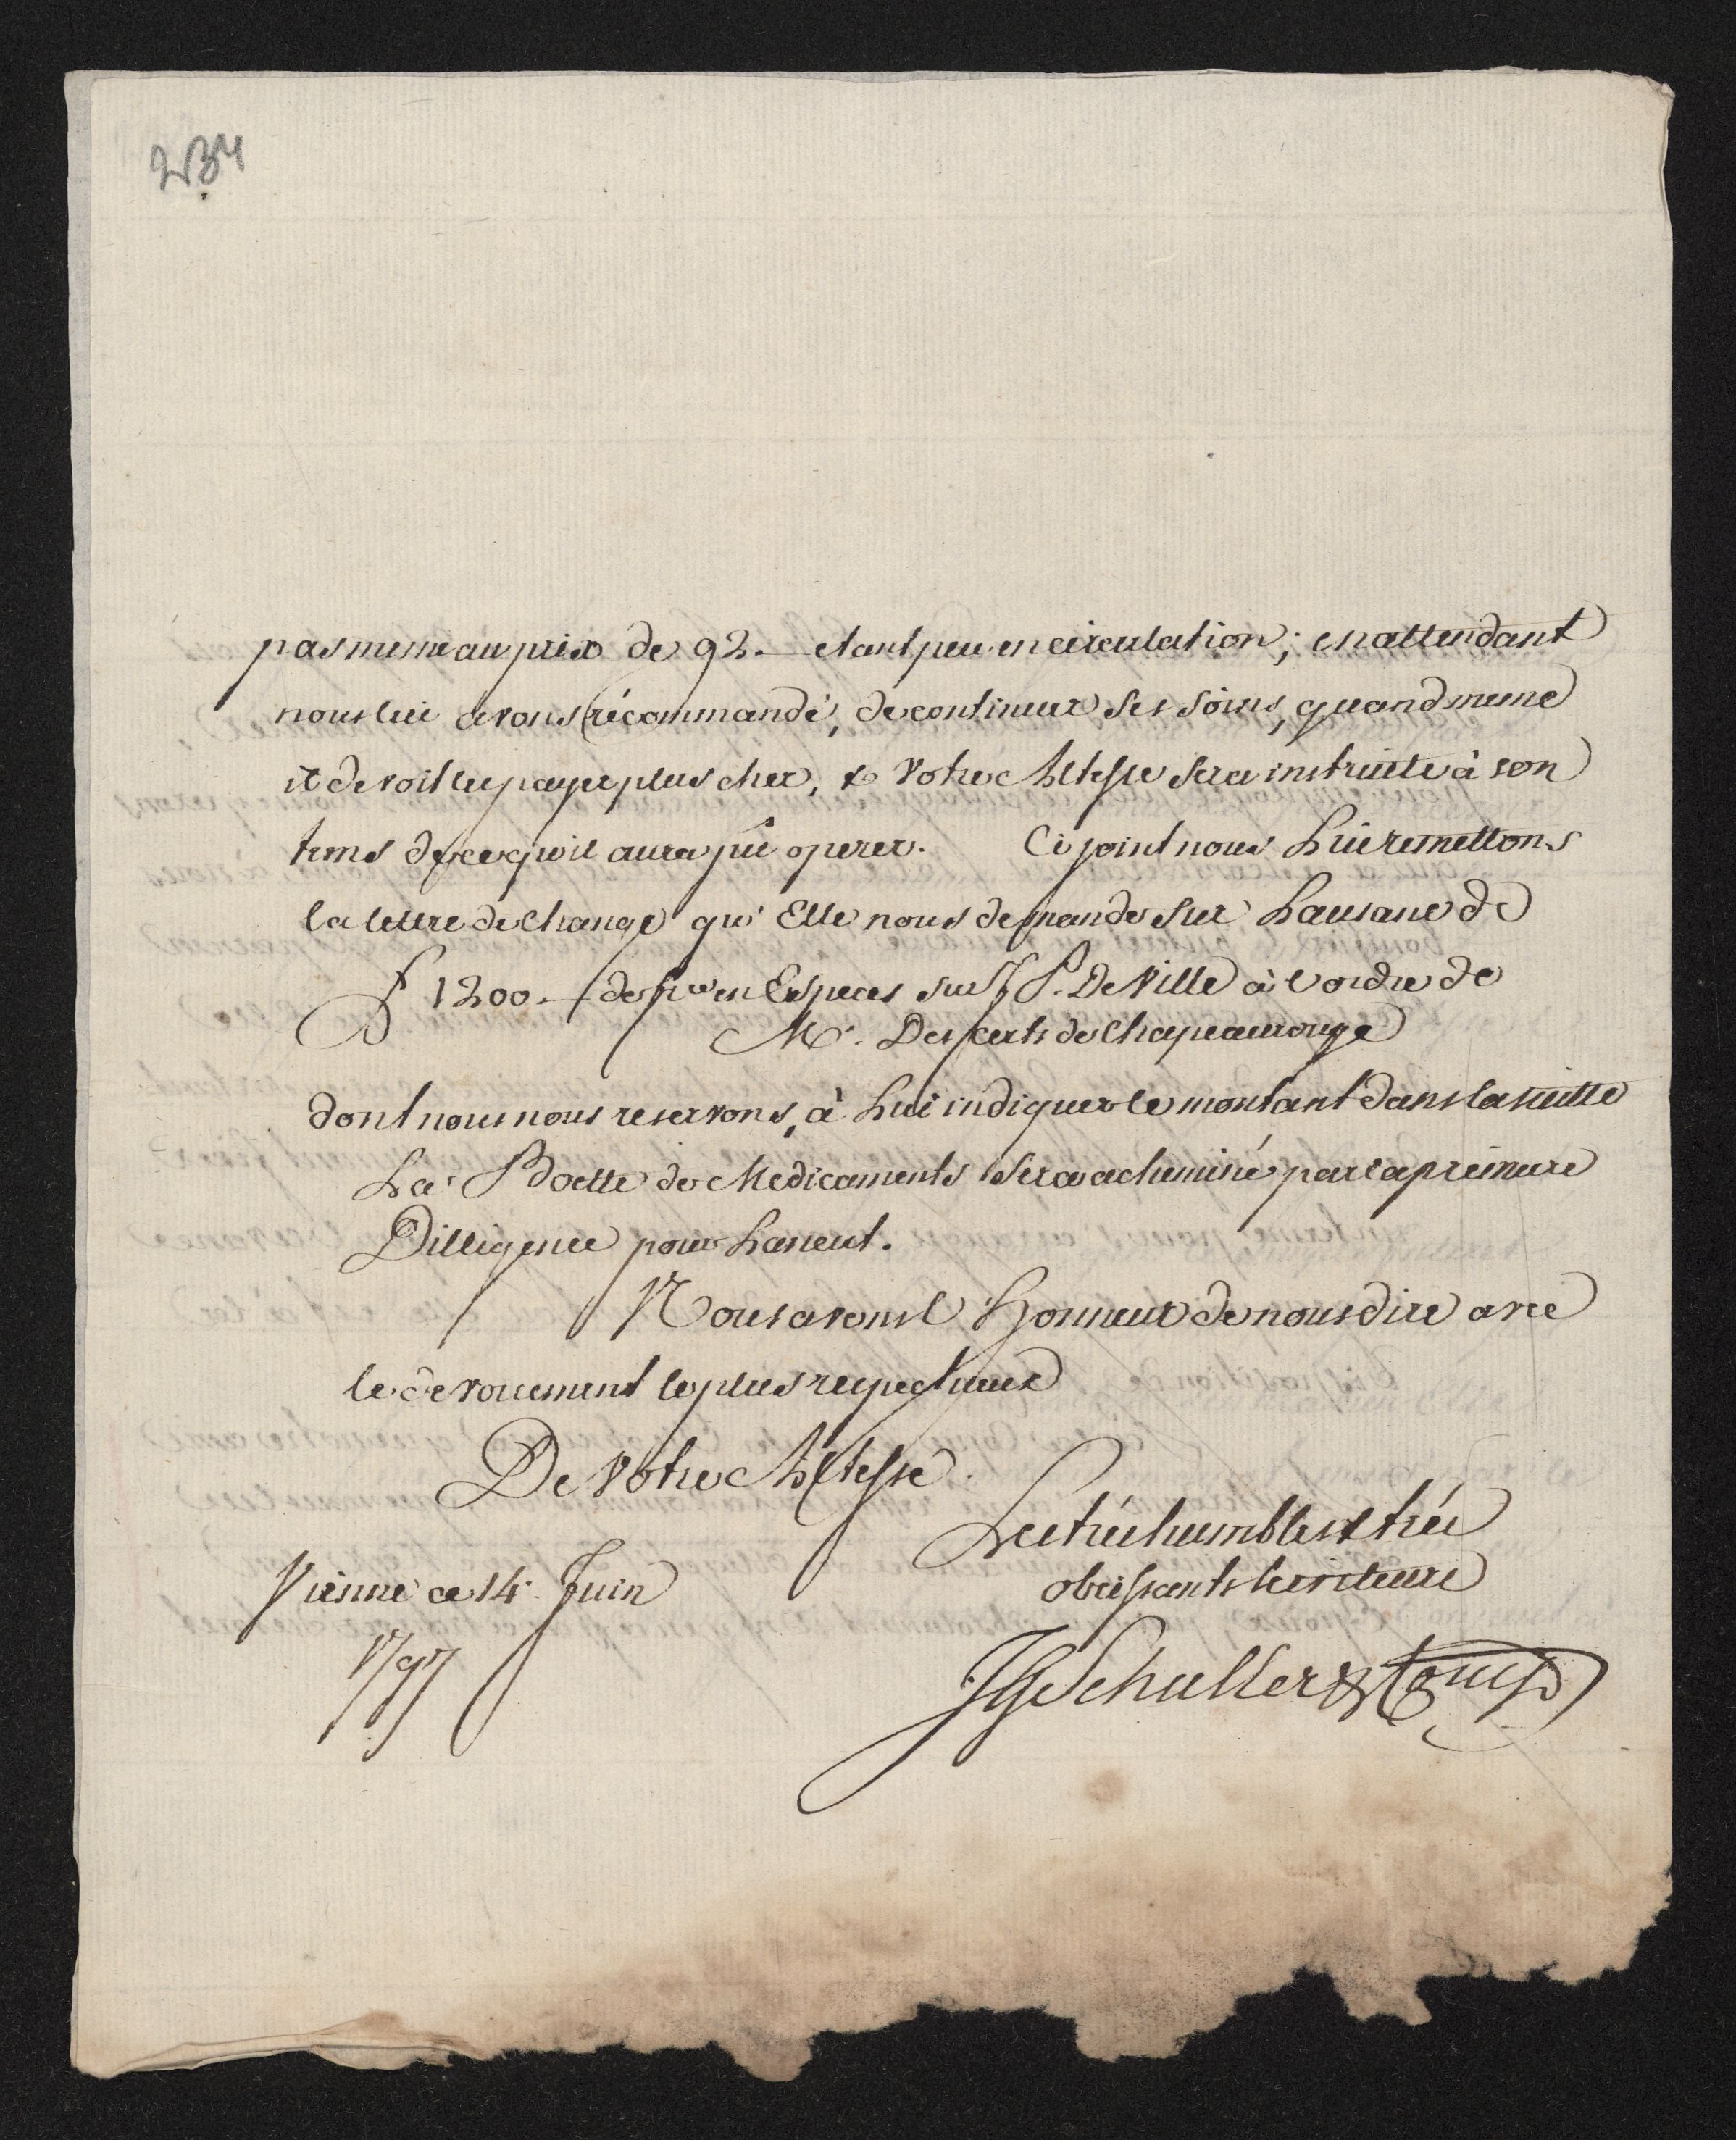 234
pas meme au prix de 92.— etant peu en circulation; en attendant
nous lui avons récommandé, de continuer ses soins, quand meme
il devoit les payer plus cher, & Votre Altesse sera instruite à son
tems de ce qu'il aura pû operer. Ci joint nous Lui remettons
la lettre de Change qu' Elle nous demande sur Lausane de
1200.— de en Especes sur J P. De Ville à l'ordre de
Mr. Des de Chapeaurouge
dont nous nous reservons, à Lui indiquer le montant dans la suitte
La Boette de Medicaments sera acheminé par la premiere
Dilligence pour Lancut.
Nous avons l'Honneur de nous dire avec
le devouement le plus respectueux
De Votre Altesse.
Les trés humbles & trés
obeissants serviteurs
Vienne ce 14. Juin
1797
Schuller & Comp